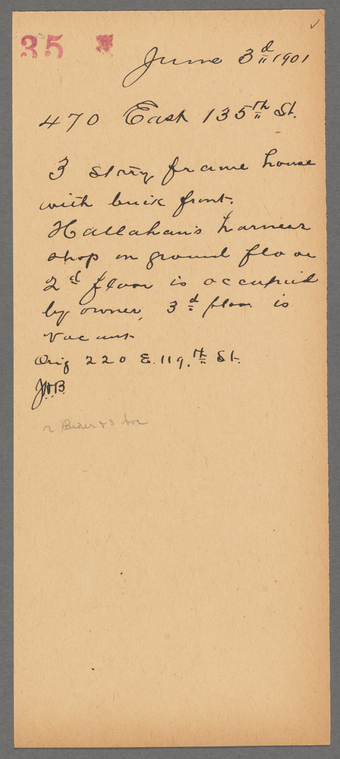 35
June 3d 1901
470 East 135th St.
3 story frame house
with brick front.
Hallahan's harness
shop on ground floor
2d floor is occupied
by owner, 3d floor is
vacant
Orig 220 E. 119th St.
J.W.B.
& 3 Ave